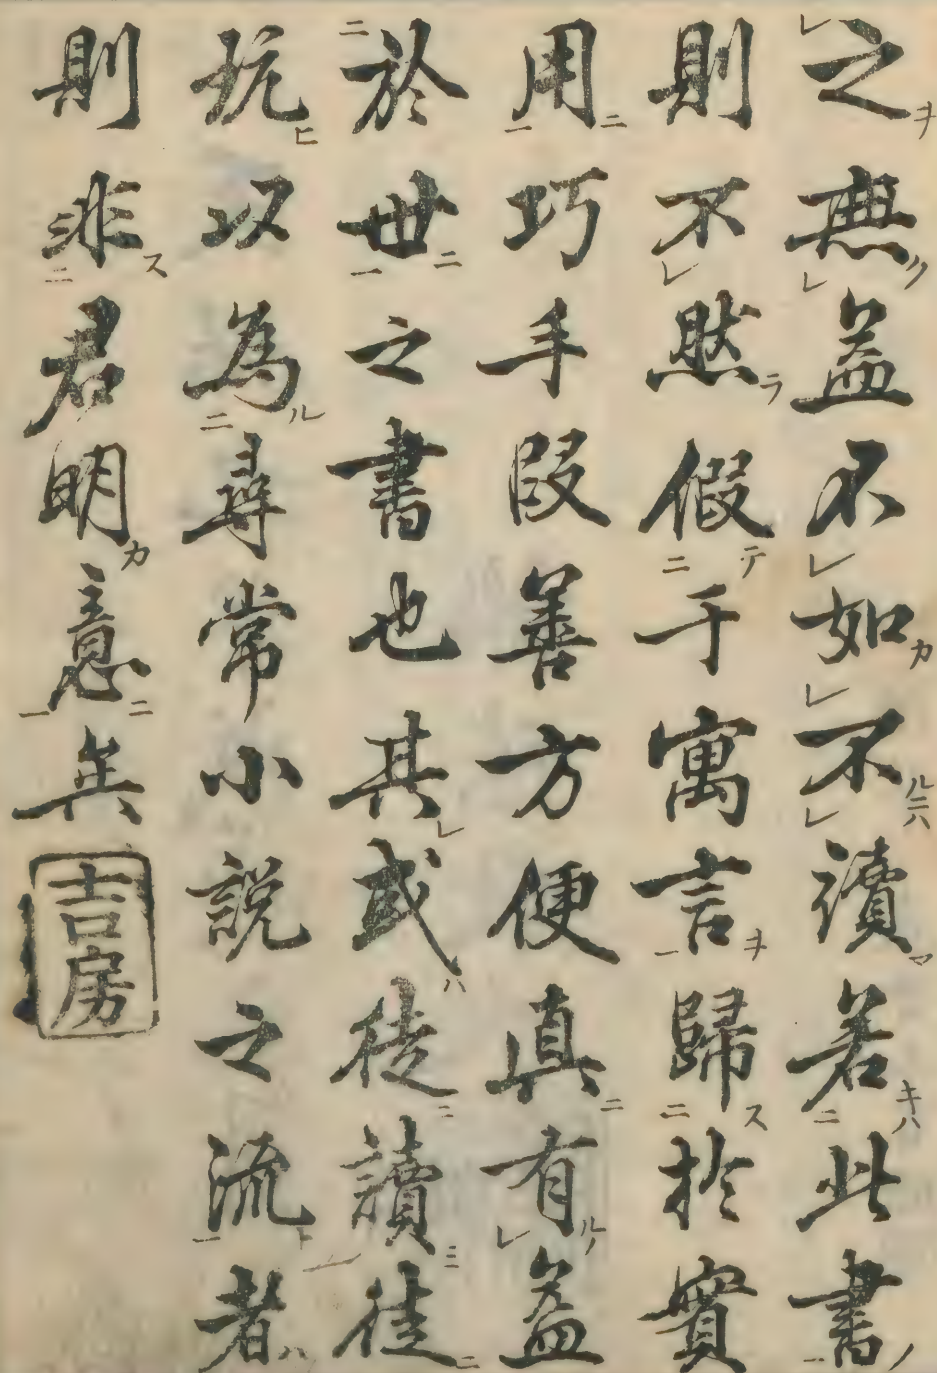 之無益不如不讀若此書
則不然假于寓言歸於實
用巧手段善方便真有益
於世之書也其或徒讀徒
玩以為尋常小説之流者
則非君明意矣
吉房